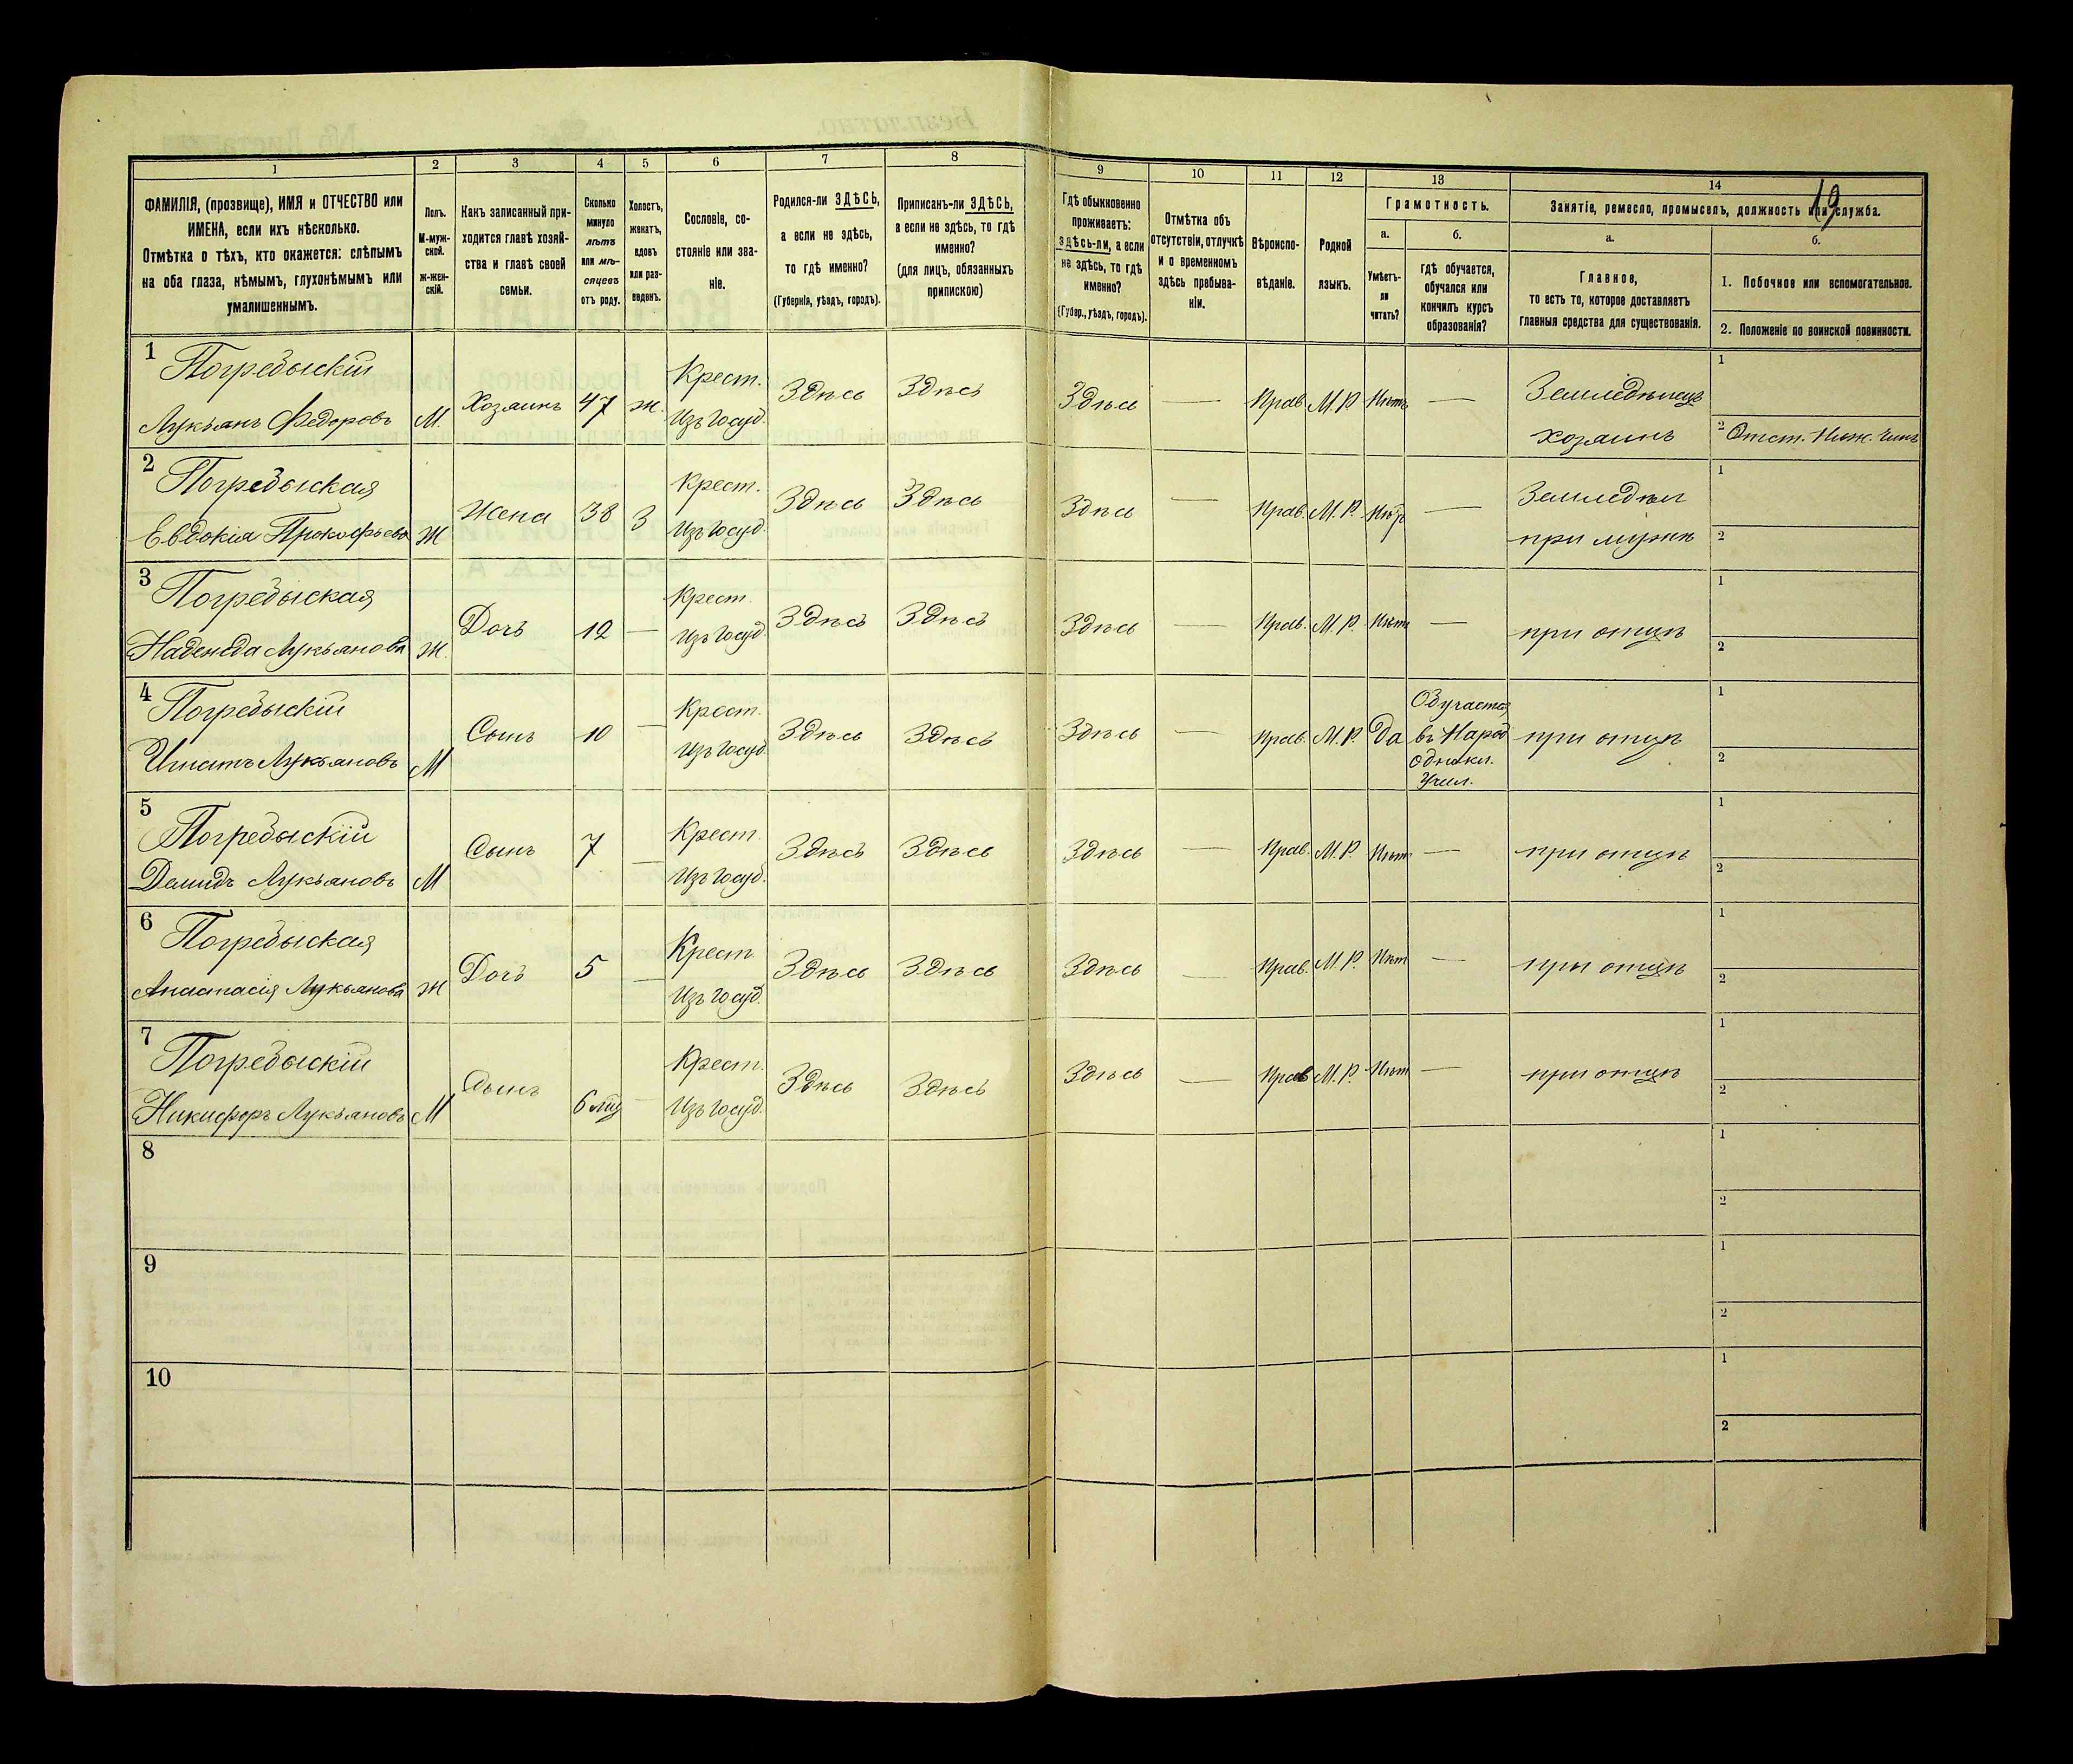 19
1 2 3 4 5 6 7 8 9 10 11 12 13 14
ФАМИЛІЯ, (прозвище), ИМЯ и ОТЧЕСТВО или
ИМЕНА, если ихъ нѣсколько.
Отмѣтка о тѣхъ, кто окажется: слѣпымъ
на оба глаза, нѣмымъ, глухонѣмымъ или
умалишеннымъ.
Полъ.
М-муж-
ской.
Ж-жен-
скій.
Какъ записанный при-
ходится главѣ хозяй-
ства и главѣ своей
семьи.
Сколько
минуло
лѣтъ
или мѣ-
сяцевъ
отъ роду.
Холостъ,
женатъ,
вдовъ
или раз-
веденъ.
Сословіе, со-
стояніе или зва-
ніе.
Родился-ли ЗДѢСЬ,
а если не здѣсь,
то гдѣ именно?
(Губернія, уѣздъ, городъ).
Приписанъ-ли ЗДѢСЬ,
а если не здѣсь, то гдѣ
именно?
(для лицъ, обязанныхъ
припискою)
Гдѣ обыкновенно
проживаетъ:
здѣсь-ли, а если
не здѣсь, то гдѣ
именно?
(Губер., уѣздъ, городъ).
Отмѣтка объ
отсутствіи, отлучкѣ
и о временномъ
здѣсь пребыва-
ніи.
Вѣроиспо-
вѣданіе.
Родной
языкъ.
Грамотность.
а.
Умѣетъ-
ли
читать?
б.
гдѣ обучается,
обучался или
кончилъ курсъ
образованія?
Занятіе, ремесло, промыселъ, должность или служба.
а.
Главное,
то есть то, которое доставляетъ
главныя средства для существованія.
б.
1. Побочное или вспомогательное.
2. Положеніе по воинской повинности.
1 Погребыскій
Лукьянъ Федоровъ
М.
Хозяинъ
47
ж.
Крест.
Изъ госуд.
Здѣсь
Здѣсь
Здѣсь
—
Прав.
М.Р.
Нѣтъ
—
Земледѣлецъ
хозяинъ
1
2 Отст. Ниж. Чинъ
2 Погребыская
Евдокія Прокофьева
Ж
Жена
38
З
Крест.
Изъ госуд.
Здѣсь
Здѣсь
Здѣсь
—
Прав.
М.Р.
Нѣтъ
—
Земледѣл
при мужѣ
1
2
3 Погребыская
Надежда Лукьянова
Ж.
Дочь
12
—
Крест.
Изъ госуд.
Здѣсь
Здѣсь
Здѣсь
—
Прав.
М.Р.
Нѣт
—
при отцѣ
1
2
4 Погребыскій
Игнатъ Лукьяновъ
М
Сынъ
10
—
Крест.
Изъ госуд.
Здѣсь
Здѣсь
Здѣсь
—
Прав.
М.Р.
Да
Обучается
въ Народ
однокл.
Учил.
при отцѣ
1
2
5 Погребыскій
Демидъ Лукьяновъ
М
Сынъ
7
—
Крест.
Изъ госуд.
Здѣсь
Здѣсь
Здѣсь
—
Прав.
М.Р.
Нѣт
—
при отцѣ
1
2
6 Погребыская
Анастасія Лукьянова
Ж
Дочь
5
—
Крест
Изъ госуд.
Здѣсь
Здѣсь
Здѣсь
—
Прав.
М.Р.
Нѣт
—
при отцѣ
1
2
7 Погребыскій
Никифоръ Лукьяновъ
М
Сынъ
6 мц
—
Крест.
Изъ госуд.
Здѣсь
Здѣсь
Здѣсь
—
Прав
М.Р.
Нѣт
—
при отцѣ
1
2
8
1
2
9
1
2
10
1
2